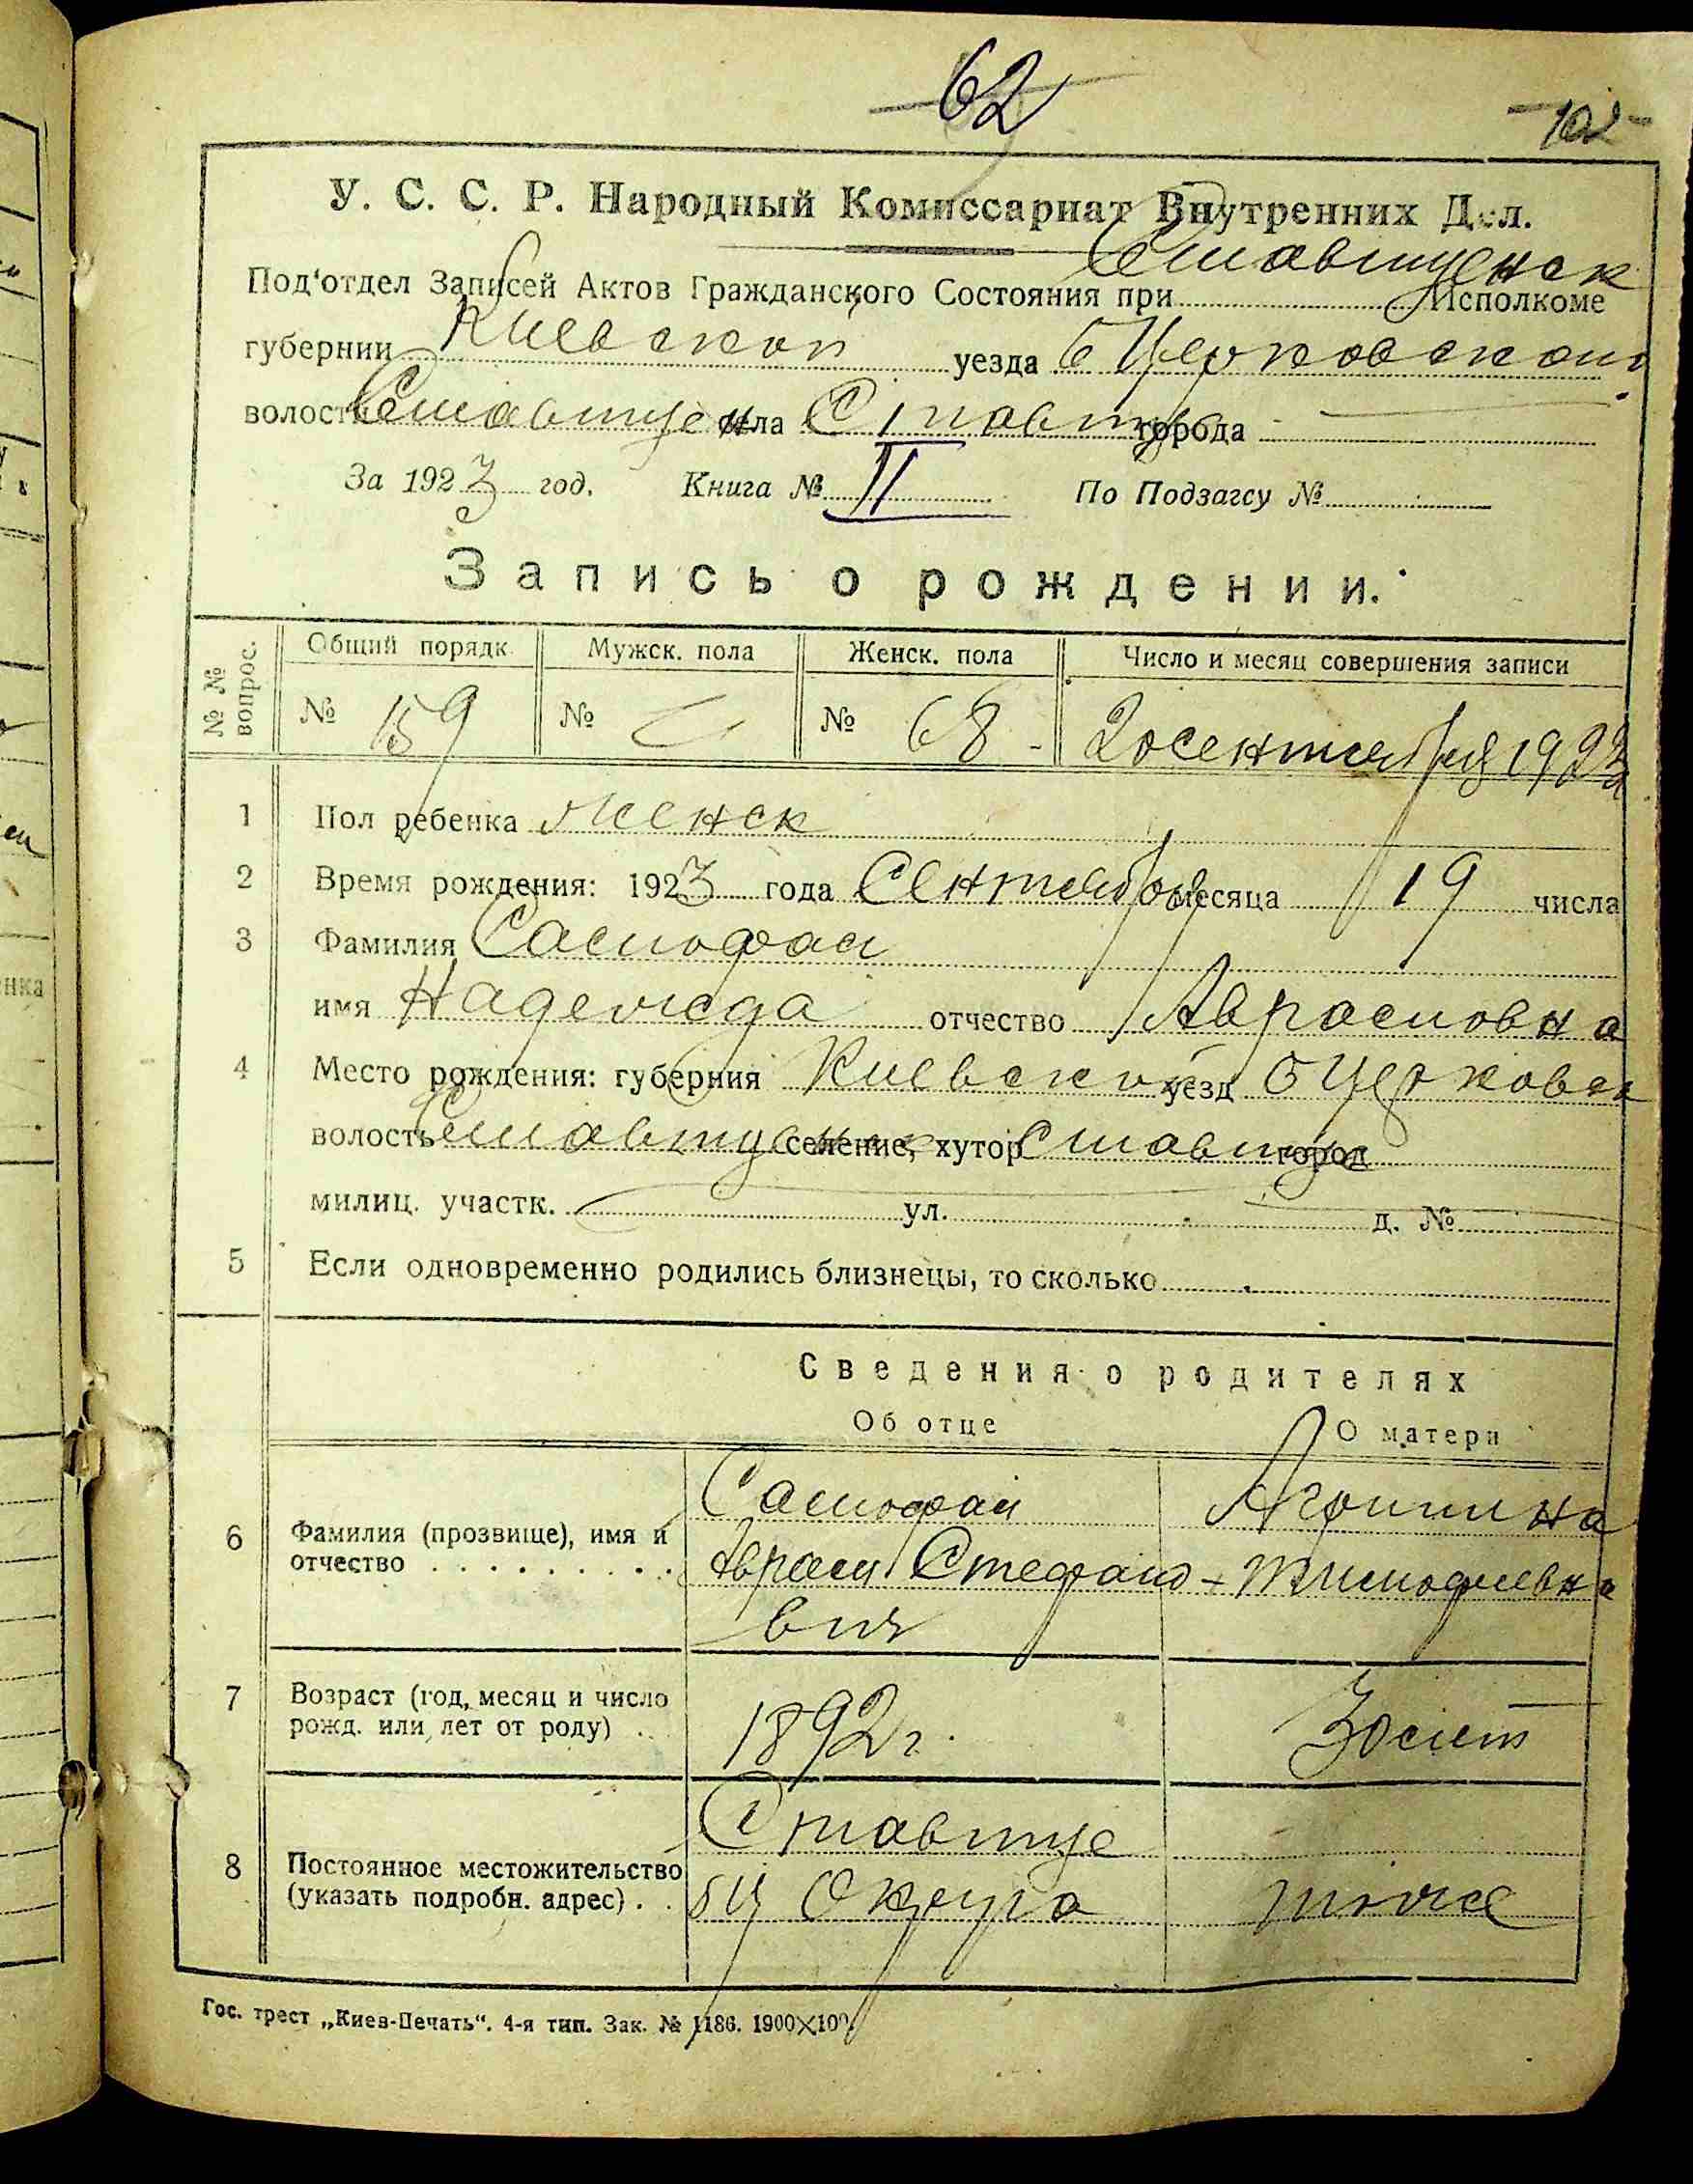 62
102
У. С. С. Р. Народный Комиссариат Внутренних Дел.
Под'отдел Записей Актов Гражданского Состояния при Ставищенск Исполкоме
губернии Киевской уезда БЦерковского
волости Ставищен села Ставище города
За 1923 год. Книга № II По Подзагсу №
Запись о рождении.
№ № вопрос.
Общий порядк. Мужск. пола Женск. пола Число и месяц совершения записи
№ 159 № № 68 - 20 сентября 1923
1 Пол ребенка женск
2 Время рождения: 1923 года Сентября месяца 19 числа
3 Фамилия
имя Надежда отчество Аврамовна
4 Место рождения: губерния Киевской уезд БЦерковск
волость Ставищенск селение, хутор Ставище город
милиц. участк. ул. д. №
5 Если одновременно родились близнецы, то сколько
Сведения о родителях
Об отце О матери
6 Фамилия (прозвище), имя и отчество
Аврам Стефано-
вич
Агрипина
Тимофеевна
7 Возраст (год, месяц и число рожд. или лет от роду)
1892 г.
30 лет
8 Постоянное местожительство (указать подробн. адрес)
Ставище
БЦ Округа
тоже
Гос. трест „Киев-Печать“. 4-я тип. Зак. № 1186. 1900×100.
енка